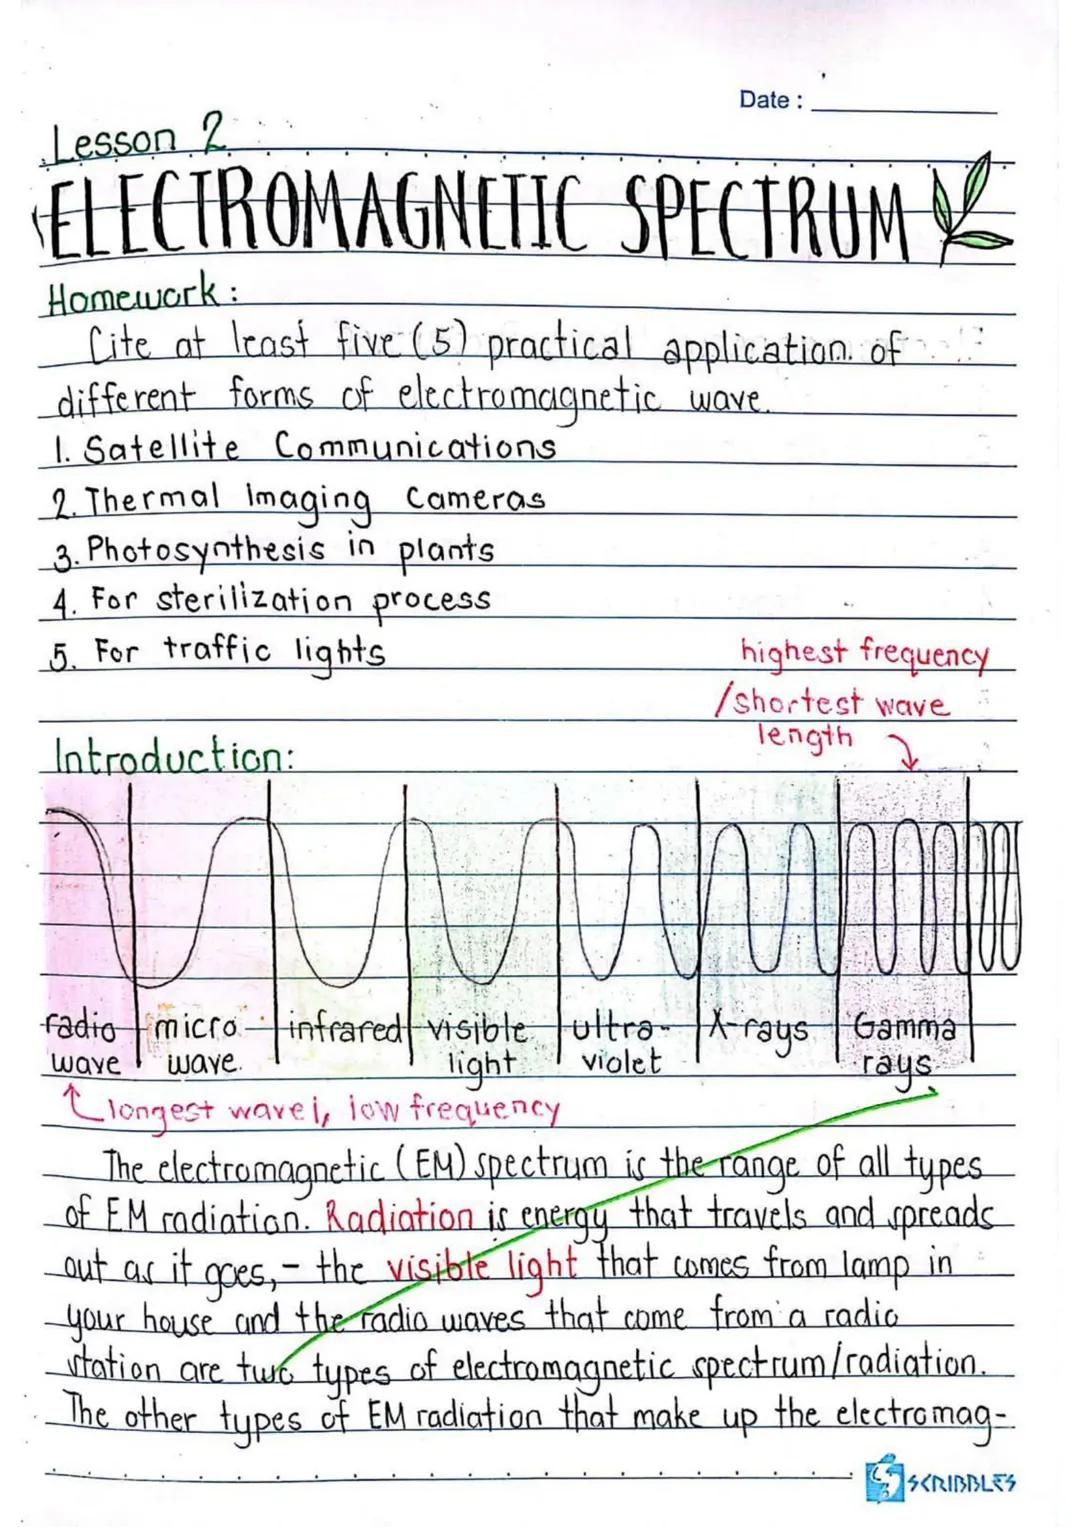 Date :
Lesson 2
ELECTROMAGNETIC SPECTRUM
Homework :
Cite at least five (5) practical application of
different forms of electromagnetic wave.
1. Satellite Communications
2. Thermal Imaging Cameras
3. Photosynthesis in plants
4. For sterilization process
5. For traffic lights
highest frequency
/shortest wave
length
Introduction:
radio micro infrared visible ultra- X-rays Gamma
wave wave. light violet rays
longest wave, low frequency
The electromagnetic (EM) spectrum is the range of all types
of EM radiation. Radiation is energy that travels and spreads
out as it goes,- the visible light that comes from lamp in
your house and the radio waves that come from a radio
station are two types of electromagnetic spectrum/radiation.
The other types of EM radiation that make up the electromag-
SCRIBBLES